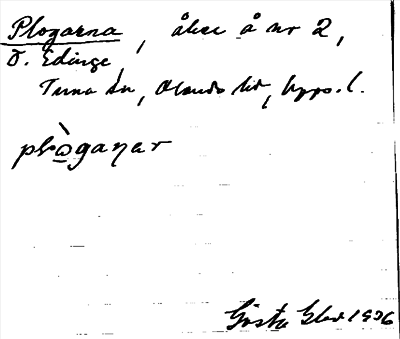 Plogarna, åker å nr 2,
Ö. Edinge,
Tuna sn, Olands hd, Upps. l.
plòganar
Gösta 1936